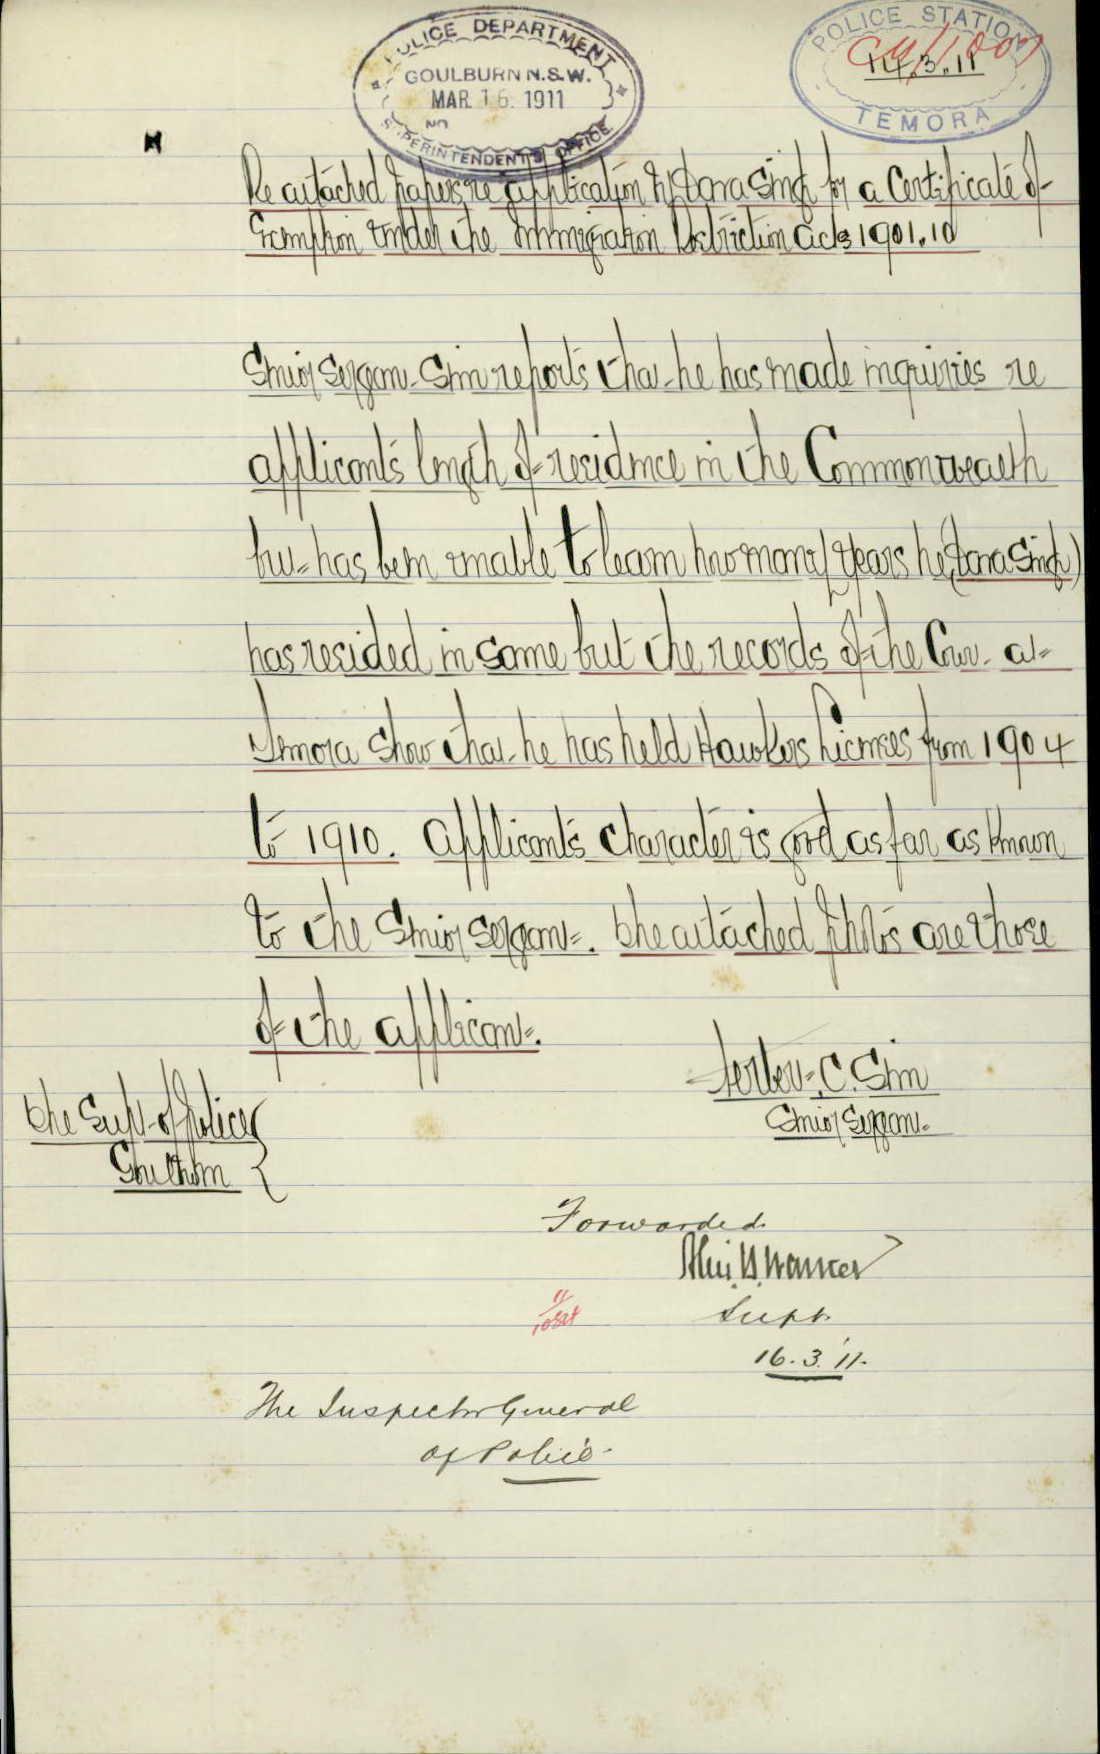 POLICE DEPARTMENT
GOULBURN N.S.W.
MAR. 16. 1911
NO
SUPERINTENDENT'S OFFICE
POLICE STATION
14.3.11
TEMORA
Re attached papers, re application by Dana Singh for a Certificate of
Exemption under the Immigration Restriction Acts 1901.10
Senior Sergeant Sim reports that he has made inquiries re
applicant's length of residence in the Commonwealth
but has been unable to learn how many years he (Dana Singh)
has resided in same but the records of the Court at
Temora show that he has held Hawkers Licenses from 1904
to 1910. Applicant's character is good as far as known
to the Senior Sergeant. The attached photos are those
of the applicant.
C. Sim
Senior Sergeant
The Supt of Police
Goulburn
Forwarded
Supt.
16.3.11.
The Inspector General
of Police